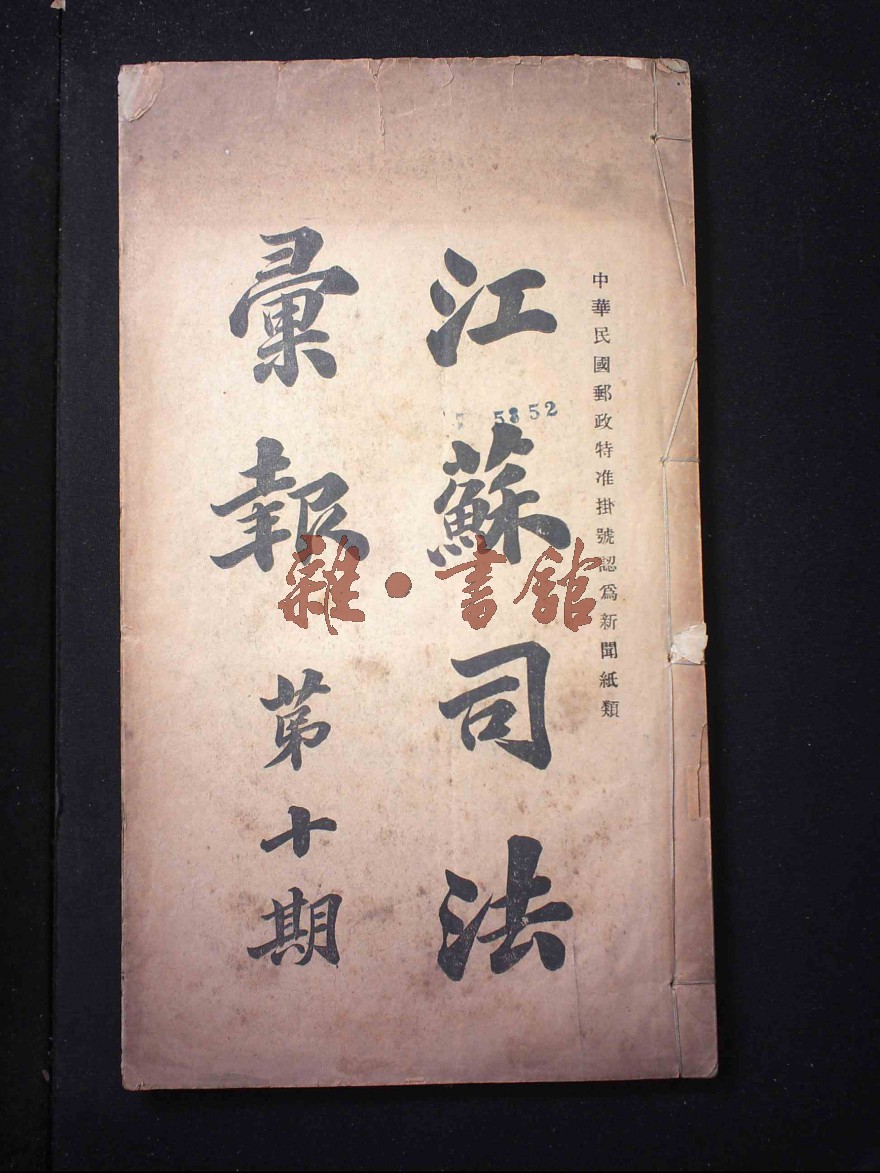 中華民國郵政特准掛號認爲新聞紙類
江蘇司法
彙報第十期
5352
雜·書館